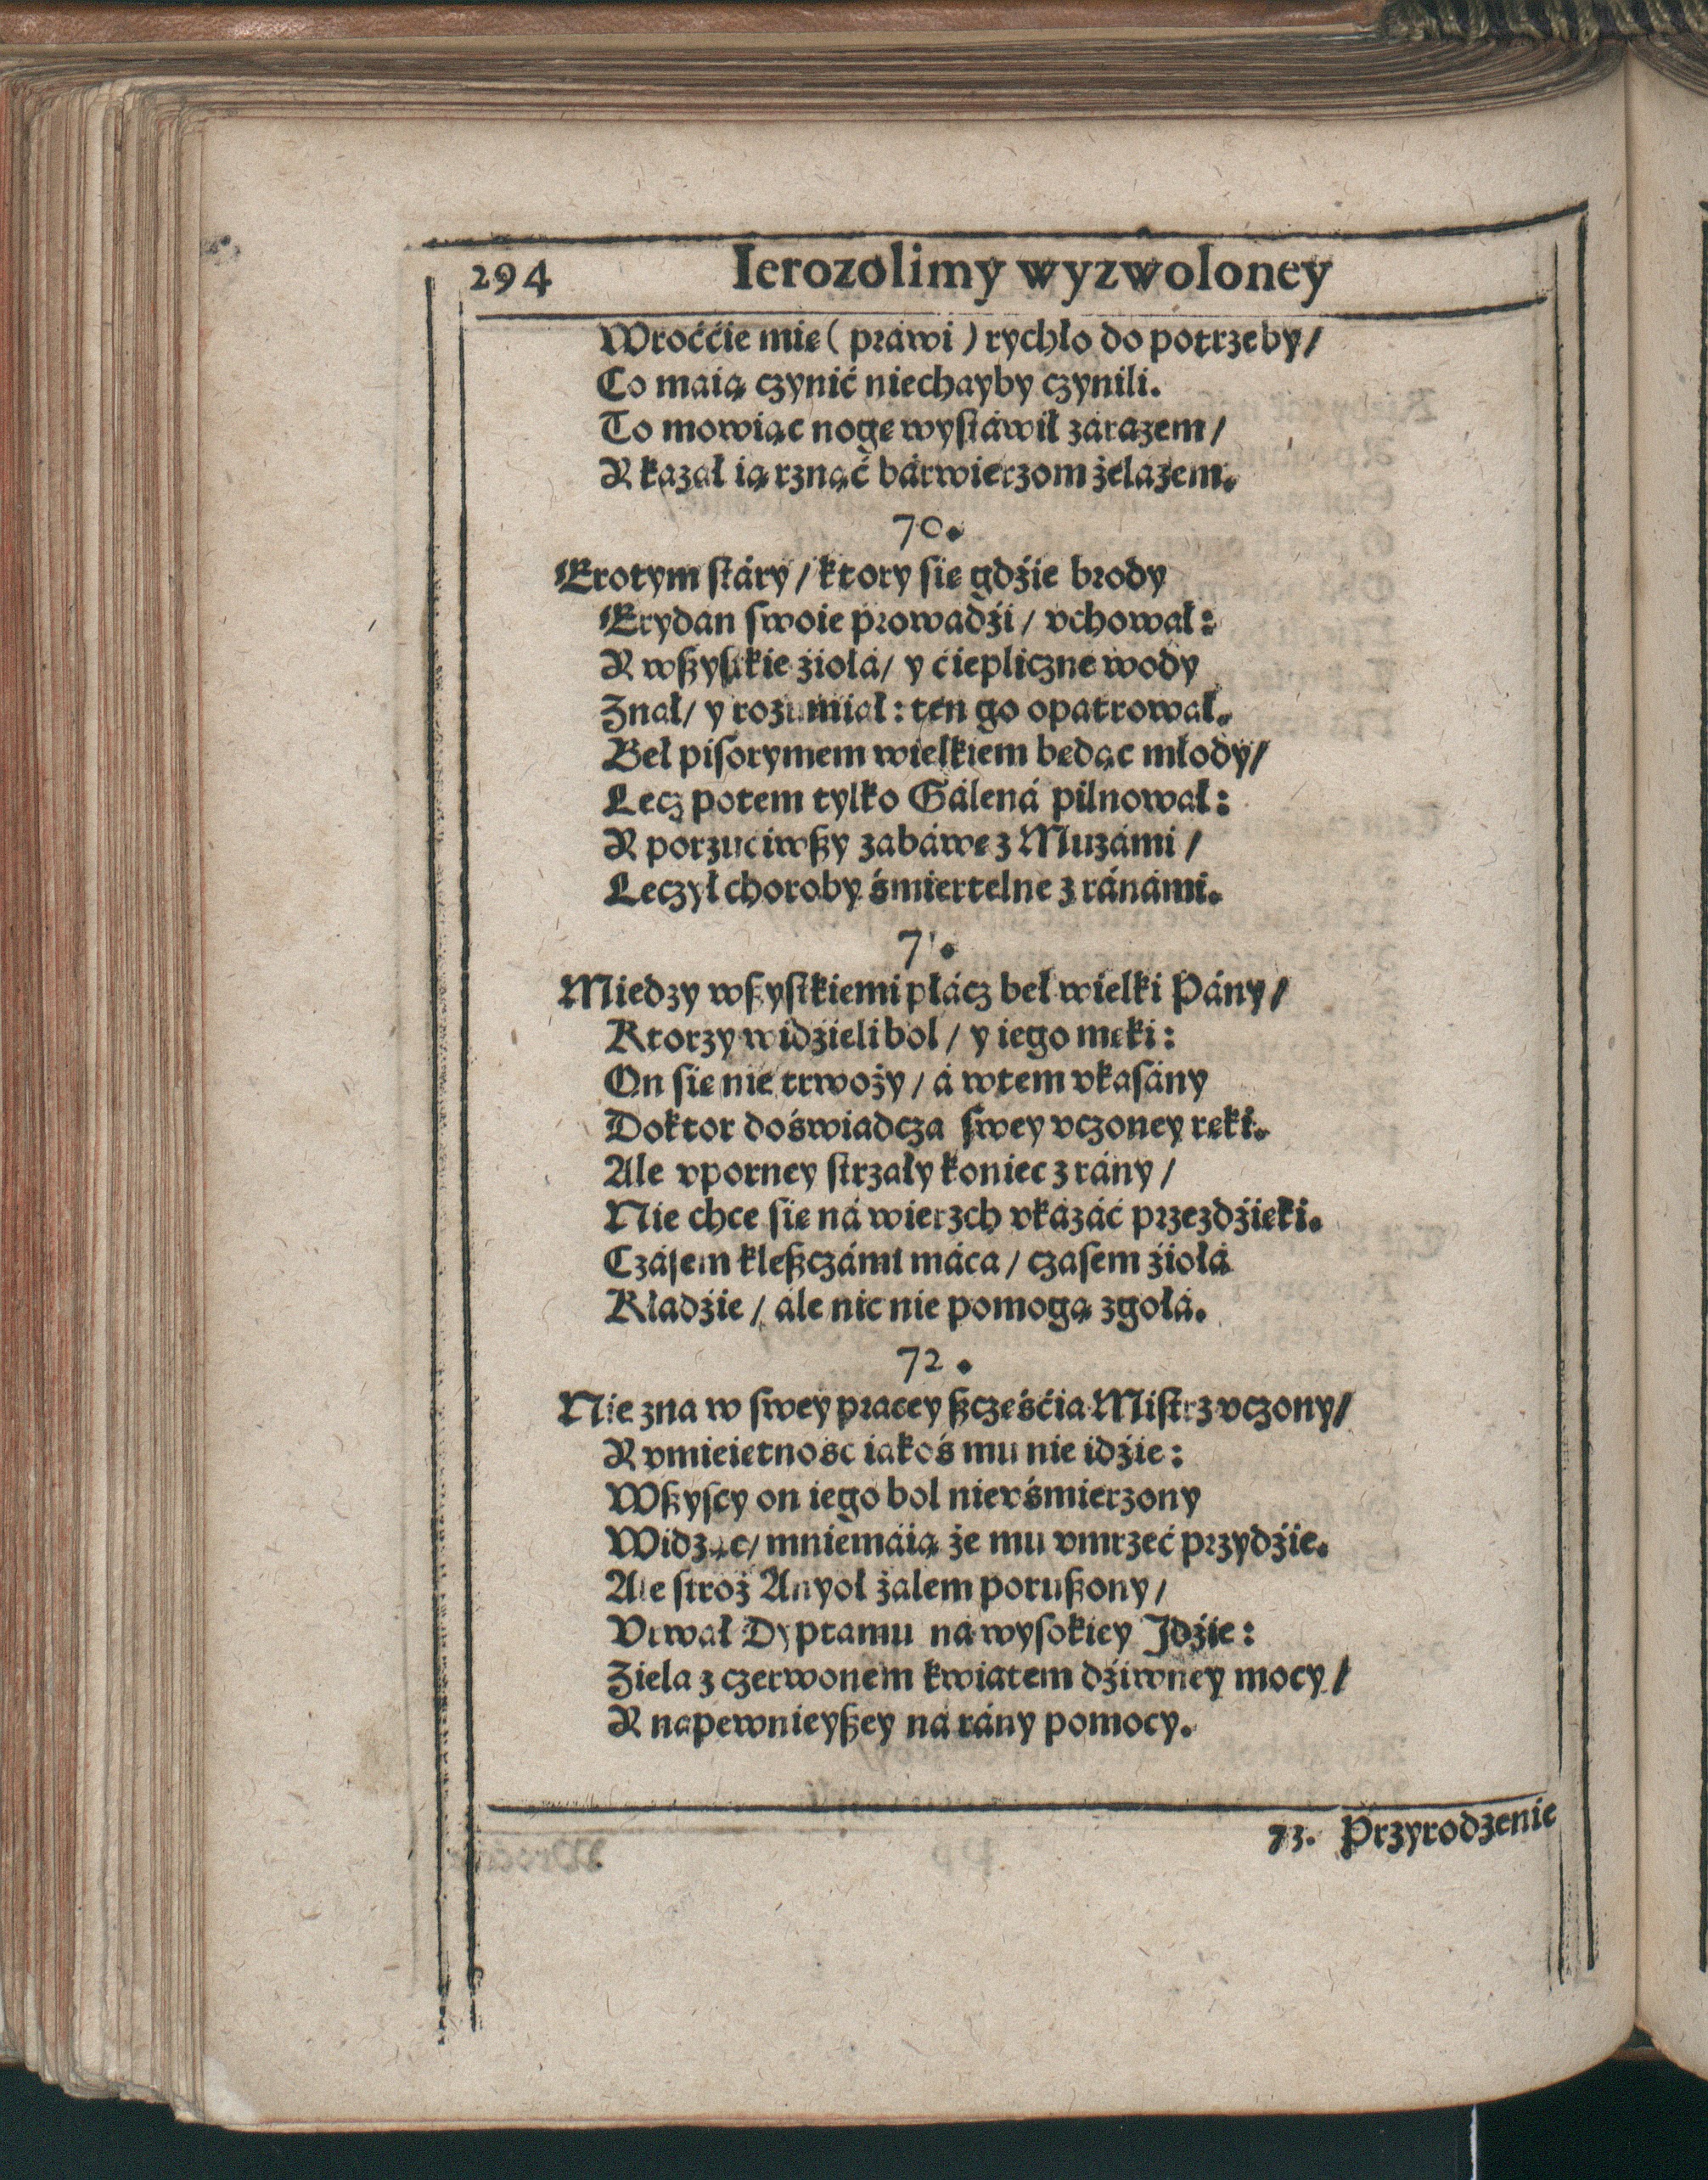 294 Ierozolimy wyzwoloney
Wroććie mię ( práwi ) rychło do potrzeby/
Co maią czynić niechayby czynili.
To mowiąc nogę wystáwił zárazem/
Y kazał ią rznąć bárwierzom żelázem.
70.
Erotym stáry/ ktory się gdźie brody
Erydan swoie prowadźi/ vchował:
Y wßystkie źiołá/ y ćiepliczne wody
Znał/ y rozumiał: ten go opatrował.
Beł pisorymem wielkiem będąc młody/
Lecz potem tylko Gálená pilnował:
Y porzuciwßy zabáwę z Muzámi/
Leczył choroby śmiertelne z ránámi.
71.
Miedzy wßystkiemi płácz beł wielki Pány/
Ktorzy widźieli bol/ y iego męki:
On się nie trwoży/ á wtem vkasány
Doktor doświadcza swey vczoney ręki.
Ale vporney strzały koniec z rány/
Nie chce się ná wierzch vkázáć przezdźięki.
Czásem kleßczámi máca/ czasem źiołá
Kładźie/ ále nic nie pomogą zgołá.
72.
Nie zna w swey pracey ßczęśćia Mistrz vczony/
Y vmieiętnosc iakoś mu nie idźie:
Wßyscy on iego bol nievśmierzony
Widząc/ mniemáią że mu vmrzeć przydźie.
Ale stroż Anyoł żalem porußony/
Vrwał Dyptamu ná wysokiey Idźie:
Ziela z czerwonem kwiatem dźiwney mocy/
Y napewnieyßey ná rány pomocy.
73. Przyrodzenie